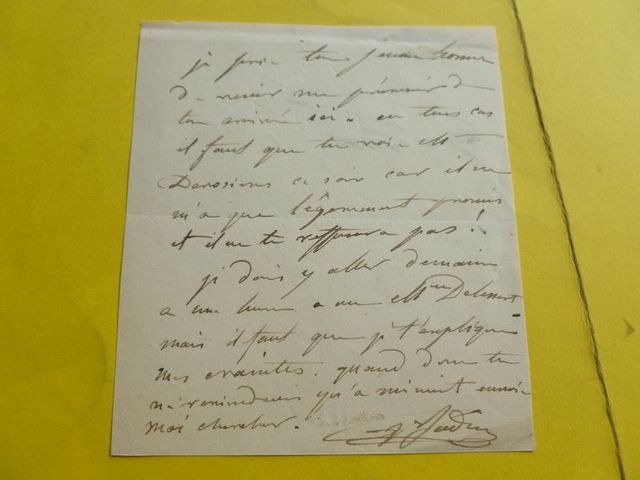 je prie ton jeune homme
de venir me prévenir de
ton arrivée ici. en tous cas
il faut que tu vois Mr
ce soir car il ne
m'a que légèrement promis
et il ne te reffusera pas !
je dois y aller demain
a une heure Delessert
mais il faut que je t'explique
mes craintes. quand donc tu
ne reviendrais qu'a minuit envoie
moi chercher.